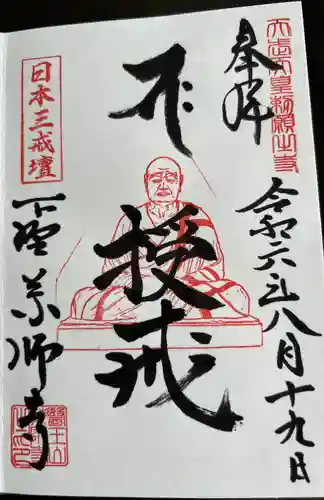 天武天皇勅願之寺
奉拝
令和六年八月十九日
授戒
日本三戒壇
下野薬師寺